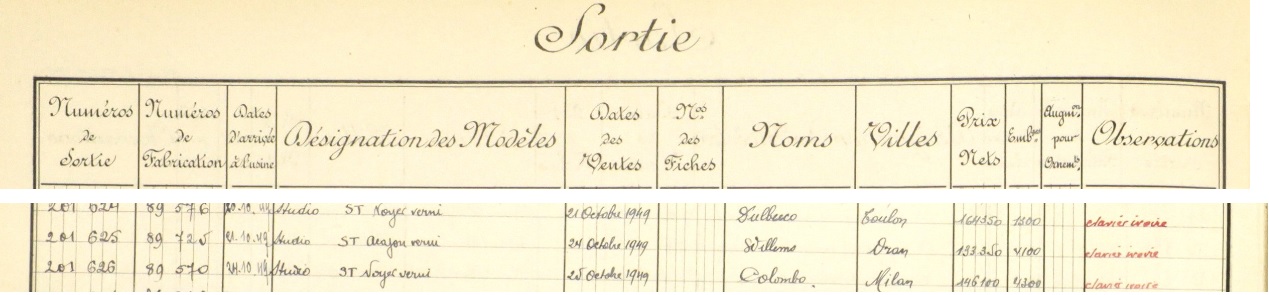 Sortie
Numéros de Sortie Numéros de Fabrication Dates d'arrivée à l'usine Désignation des Modèles Dates des Ventes Nos des Fiches Noms Villes Prix Nets Emb.ges Augm.on pour Ornem.ts Observations
201 624 89 576 20.10.49 Studio ST Noyer verni 21 Octobre 1949 Toulon 164350 clavier ivoire
201 625 89 725 21.10.49 Studio ST verni 24 Octobre 1949 Willems Oran 193350 4100 clavier ivoire
201 626 89 570 24.10.49 Studio ST Noyer verni 25 Octobre 1949 Colombo. Milan 146100 4300 clavier ivoire